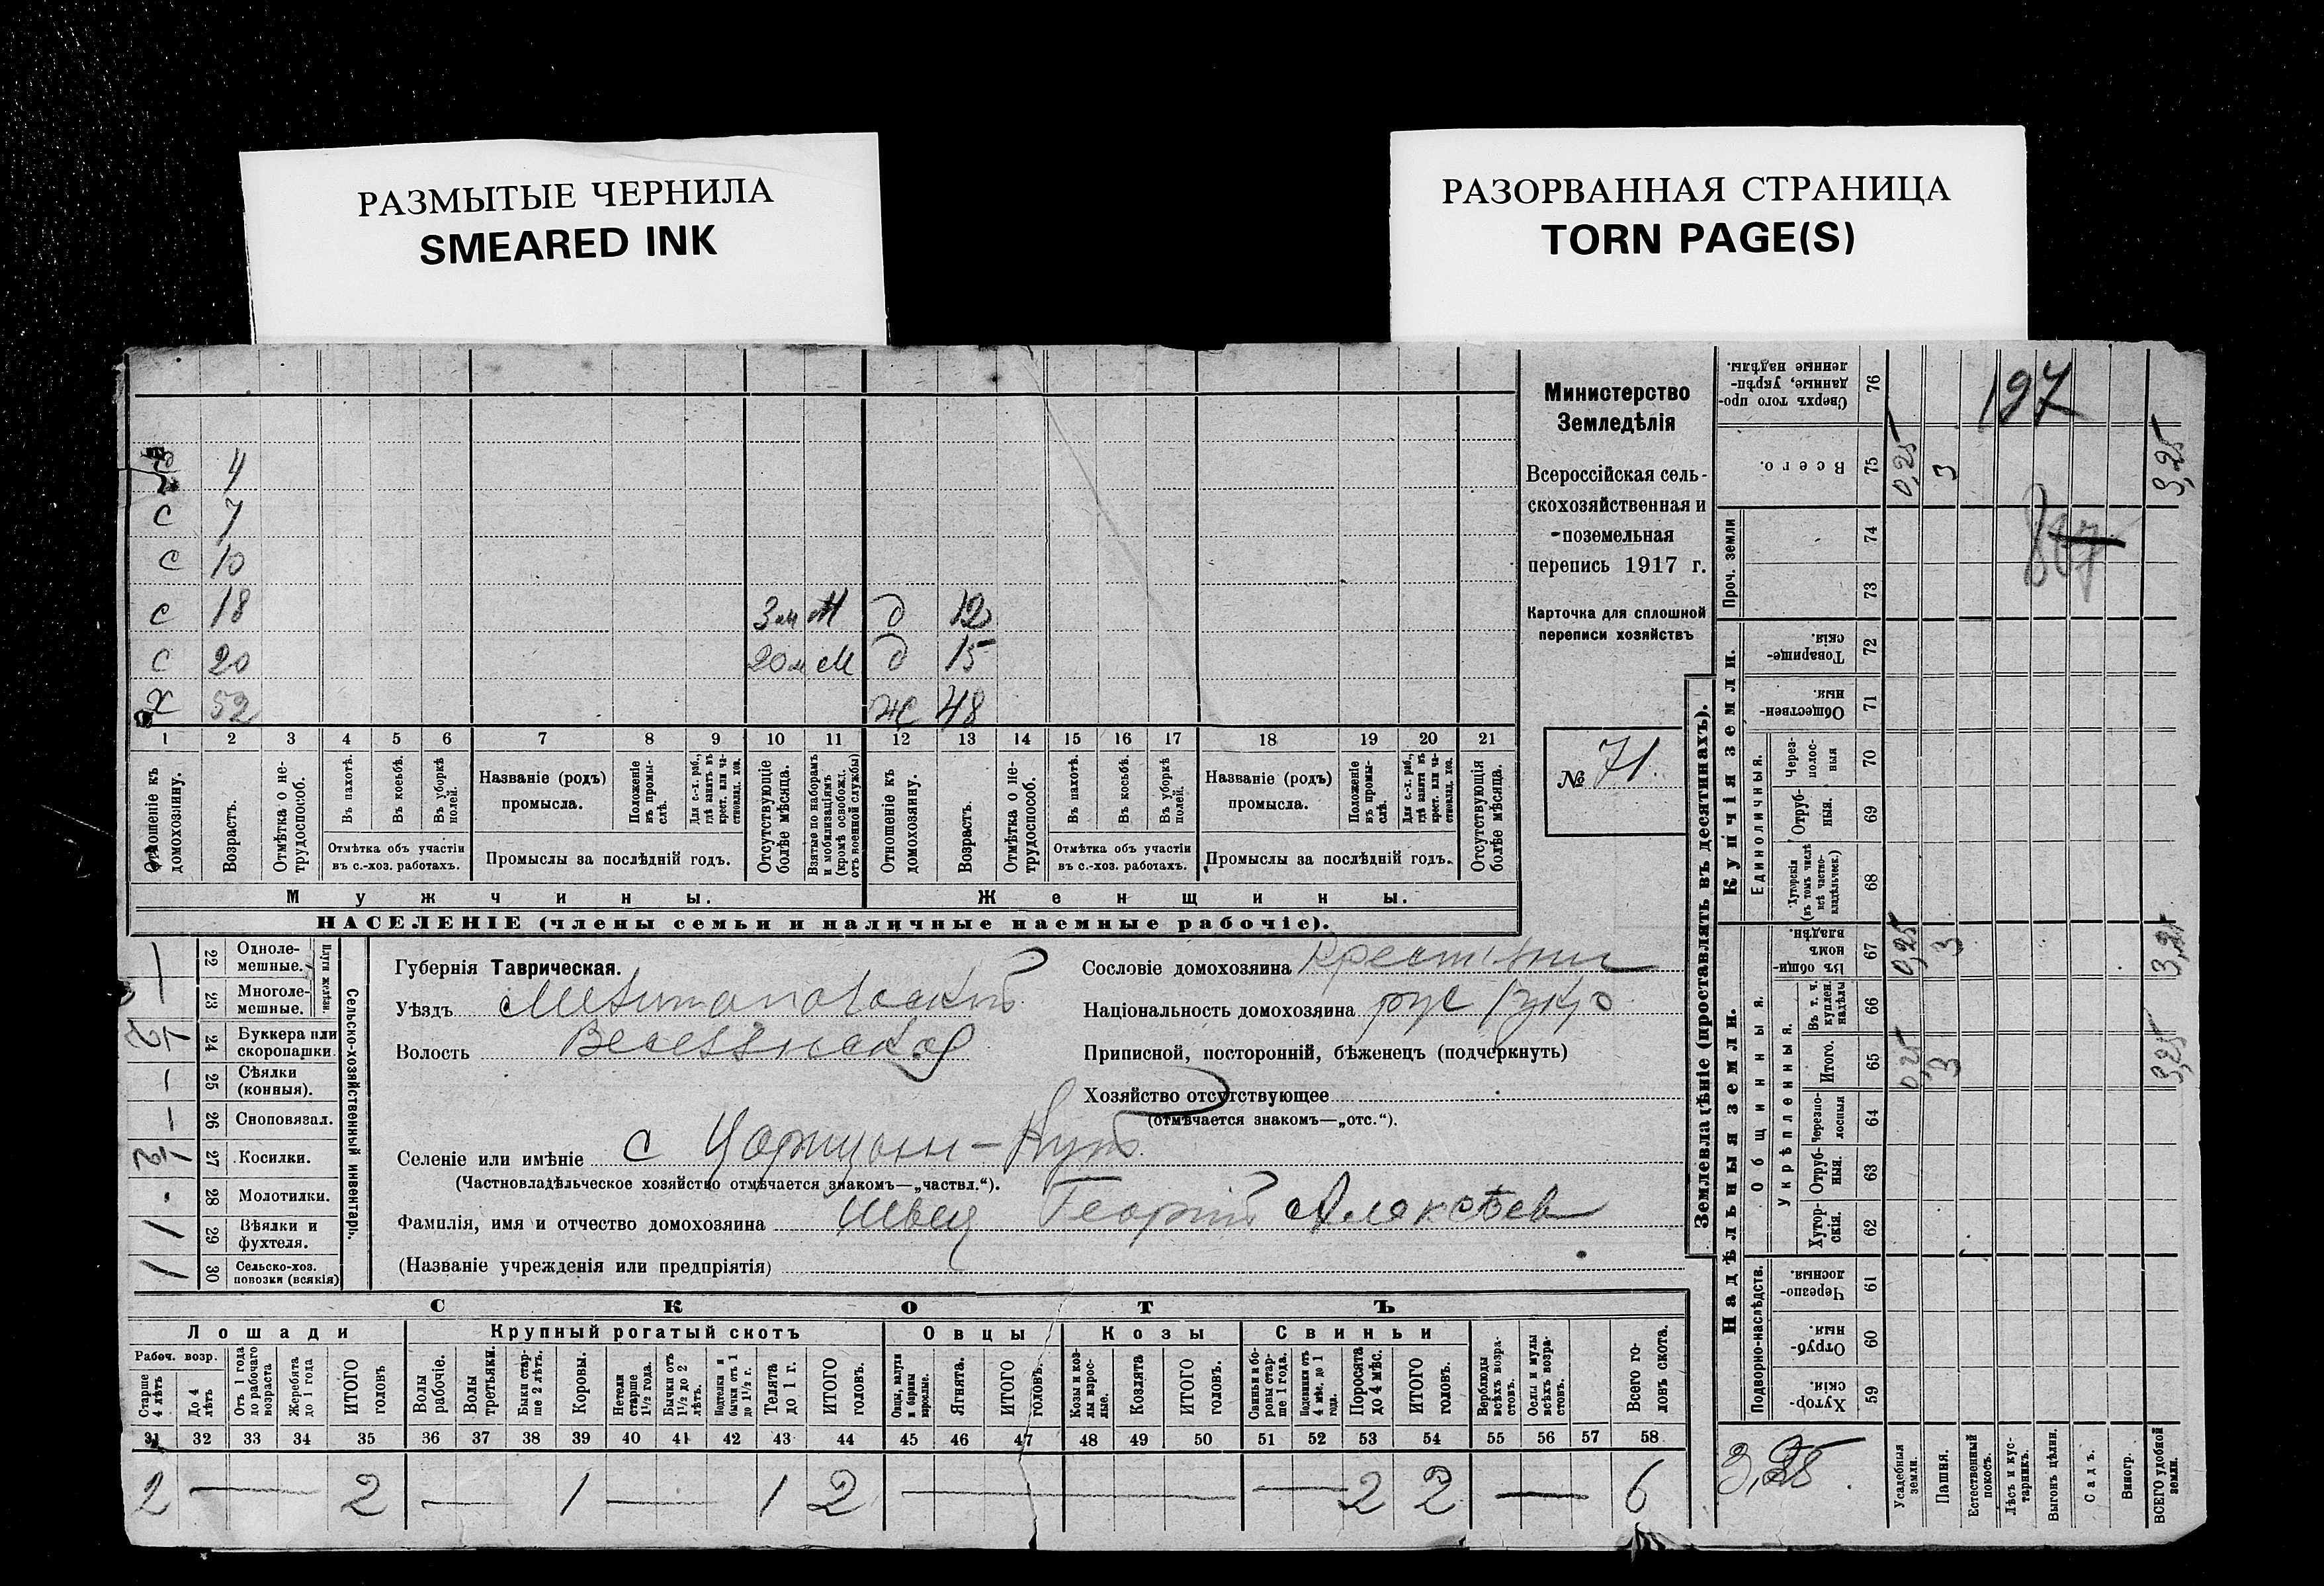 РАЗМЫТЫЕ ЧЕРНИЛА
SMEARED INK
РАЗОРВАННАЯ СТРАНИЦА
TORN PAGE(S)
4
с 7
с 10
с 18 3 м М д 12
с 20 20 м М д 15
х 52 ж 48
1 2 3 4 5 6 7 8 9 10 11 12 13 14 15 16 17 18 19 20 21
Отношеніе къ домохозяину.
Возрастъ.
Отмѣтка о не-трудоспособ.
Въ пахотѣ.
Въ косьбѣ.
Въ уборкѣ полей.
Отмѣтка объ участіи
въ с.-хоз. работахъ.
Названіе (родъ)
промысла.
Положеніе въ промы-слѣ.
Для с.-х. раб., гдѣ занятъ въ крест. или ча-стновлад. хоз.
Промыслы за послѣдній годъ.
Отсутствующіе болѣе мѣсяца.
Взятые по наборамъ и мобилизаціямъ (кромѣ освобожд. отъ военной службы)
Отношеніе къ домохозяину.
Возрастъ.
Отмѣтка о не-трудоспособ.
Въ пахотѣ.
Въ косьбѣ.
Въ уборкѣ полей.
Отмѣтка объ участіи
въ с.-хоз. работахъ.
Названіе (родъ)
промысла.
Положеніе въ промы-слѣ.
Для с.-х. раб., гдѣ занятъ въ крест. или ча-стновлад. хоз.
Промыслы за послѣдній годъ.
Отсутствующія болѣе мѣсяца.
Мужчины.
Женщины.
НАСЕЛЕНІЕ (члены семьи и наличные наемные рабочіе).
Министерство
Земледѣлія
Всероссійская сель-
скохозяйственная и
поземельная
перепись 1917 г.
Карточка для сплошной
переписи хозяйствъ
№ 71
22 Одноле-мешные.
23 Многоле-мешные.
24 Буккера или скоропашки
25 Сѣялки (конныя).
26 Сноповязал.
27 Косилки.
28 Молотилки.
29 Вѣялки и фухтеля.
30 Сельско-хоз. повозки (всякія)
Сельско-хозяйственный инвентарь.
Губернія Таврическая.
Уѣздъ Мелитопольскій
Волость Веселовская
Сословіе домохозяина крестьянин
Національность домохозяина рус укр
Приписной, посторонній, бѣженецъ (подчеркнуть)
Хозяйство отсутствующее
(отмѣчается знакомъ—„отс.“).
Селеніе или имѣніе с Царицын-Кут
(Частновладѣльческое хозяйство отмѣчается знакомъ—„частвл.“).
Фамилія, имя и отчество домохозяина Швец Георгій Алексѣев
(Названіе учрежденія или предпріятія)
СКОТЪ
Лошади
Крупный рогатый скотъ
Овцы
Козы
Свиньи
Рабоч. возр.
Старше 4 лѣтъ
До 4 лѣтъ
Отъ 1 года до рабочаго возраста
Жеребята до 1 года
ИТОГО головъ
Волы рабочіе.
Волы третьяки.
Быки стар-ше 2 лѣтъ.
Коровы.
Нетели старше 1½ года.
Бычки отъ 1½ до 2 лѣтъ.
Подтелки и бычки отъ 1 до 1½ г.
Телята до 1 г.
ИТОГО головъ.
Овцы, валухи и бараны взрослые.
Ягнята.
ИТОГО головъ.
Козы и коз-лы взрос-лые.
Козлята
ИТОГО головъ.
Свиньи и бо-ровы стар-ше 1 года.
Подсвинки отъ 4 мѣс. до 1 года.
Поросята до 4 мѣс.
ИТОГО головъ.
Верблюды всѣхъ возра-стовъ.
Ослы и мулы всѣхъ возра-стовъ.
Всего го-ловъ скота.
31 32 33 34 35 36 37 38 39 40 41 42 43 44 45 46 47 48 49 50 51 52 53 54 55 56 57 58
2 — 2 — 1 — 1 2 — — 2 2 — 6
Землевладѣніе (проставлять въ десятинахъ).
Надѣльныя земли.
Купчія земли.
Проч. земли
Подворно-наслѣдств.
Общинныя.
Укрѣпленныя.
Единоличныя.
Сверхъ того про-данные, укрѣп-ленные надѣлы. 76
Всего. 75 0,25 3 3,25
74
73
Товарище-скія. 72
Обществен-ныя 71
Через-полос-ныя 70
Отруб-ныя. 69
Хуторскія (въ томъ числѣ всѣ частно-владѣльческ.) 68
Въ общин-номъ владѣн. 67 0,25 3 3,25
Въ т. ч. куплен. надѣлы 66
Итого. 65 0,25 3 3,25
Черезпо-лосныя 64
Отруб-ныя. 63
Хутор-скія. 62
Черезпо-лосныя. 61
Отруб-ныя. 60
Хутор-скія. 59
197
3,25
Усадебныя земли.
Пашня.
Естественный покосъ.
Лѣсъ и кус-тарникъ.
Выгонъ цѣлин.
Садъ.
Виногр.
ВСЕГО удобной земли.